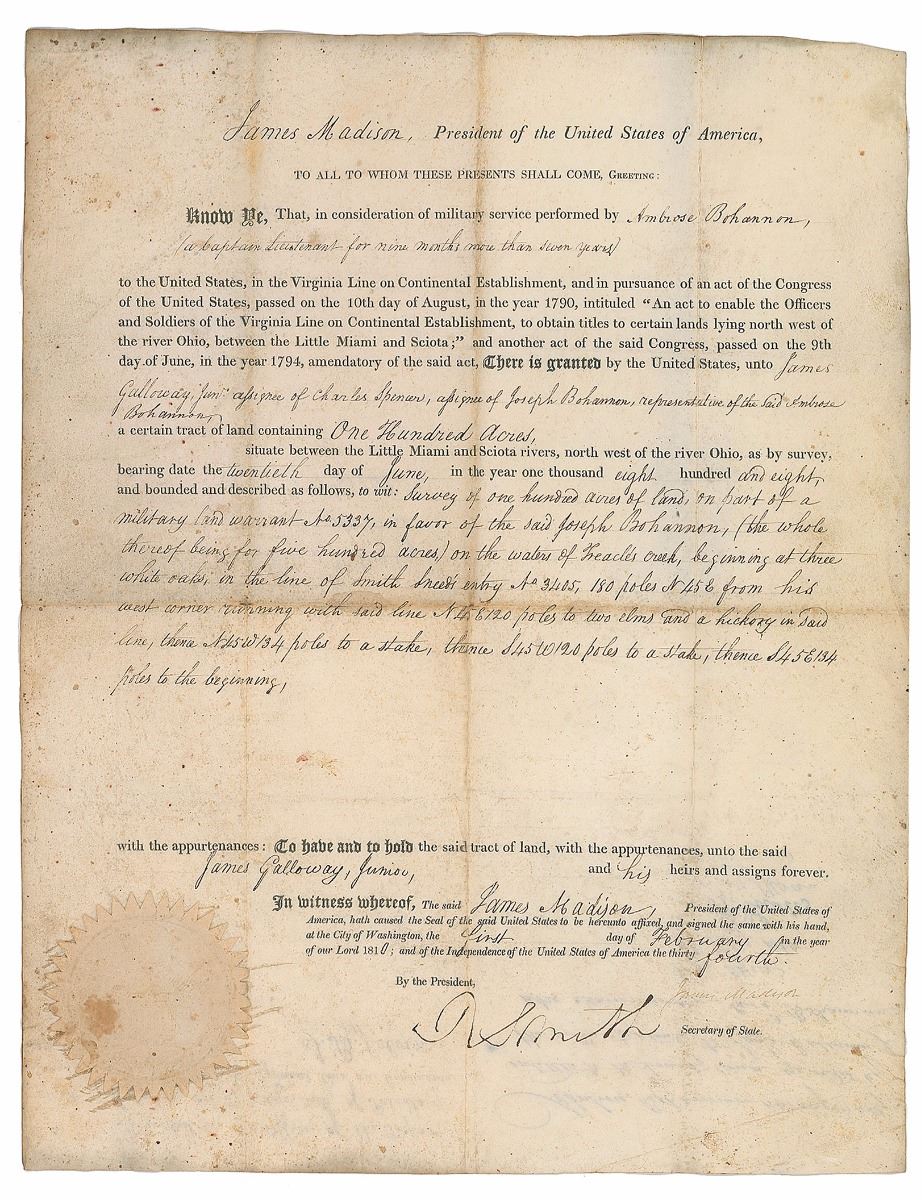 James Madison, President of the United States of America,
TO ALL TO WHOM THESE PRESENTS SHALL COME, GREETING:
Know Ye, That, in consideration of military service performed by Ambrose Bohannon,
(a Captain Lieutenant for nine months more than seven years)
to the United States, in the Virginia Line on Continental Establishment, and in pursuance of an act of the Congress
of the United States, passed on the 10th day of August, in the year 1790, intituled "An act to enable the Officers
and Soldiers of the Virginia Line on Continental Establishment, to obtain titles to certain lands lying north west of
the river Ohio, between the Little Miami and Sciota;" and another act of the said Congress, passed on the 9th
day of June, in the year 1794, amendatory of the said act, There is granted by the United States, unto James
Galloway, Junr. assignee of Charles Spencer, assignee of Joseph Bohannon, representative of the said Ambrose
Bohannon,
a certain tract of land containing One Hundred Acres,
situate between the Little Miami and Sciota rivers, north west of the river Ohio, as by survey,
bearing date the twentieth day of June, in the year one thousand eight hundred and eight
and bounded and described as follows, to wit: Survey of one hundred acres of land, on part of a
military land warrant No. 5337, in favor of the said Joseph Bohannon, (the whole
thereof being for five hundred acres) on the waters of Treacle's creek, beginning at three
white oaks, in the line of Smith Sneed's entry No 3405, 180 poles N 45 E from his
west corner running with said line N 45 E 120 poles to two elms and a hickory in said
line, thence N 45 W 134 poles to a stake, thence S 45 W 120 poles to a stake, thence S 45 E 134
poles to the beginning,
with the appurtenances: To have and to hold the said tract of land, with the appurtenances, unto the said
James Galloway, Junior, and his heirs and assigns forever.
In witness whereof, The said James Madison, President of the United States of
America, hath caused the Seal of the said United States to be hereunto affixed, and signed the same with his hand,
at the City of Washington, the first day of February in the year
of our Lord 1810; and of the Independence of the United States of America the thirty fourth.
By the President,
James Madison
R Smith Secretary of State.